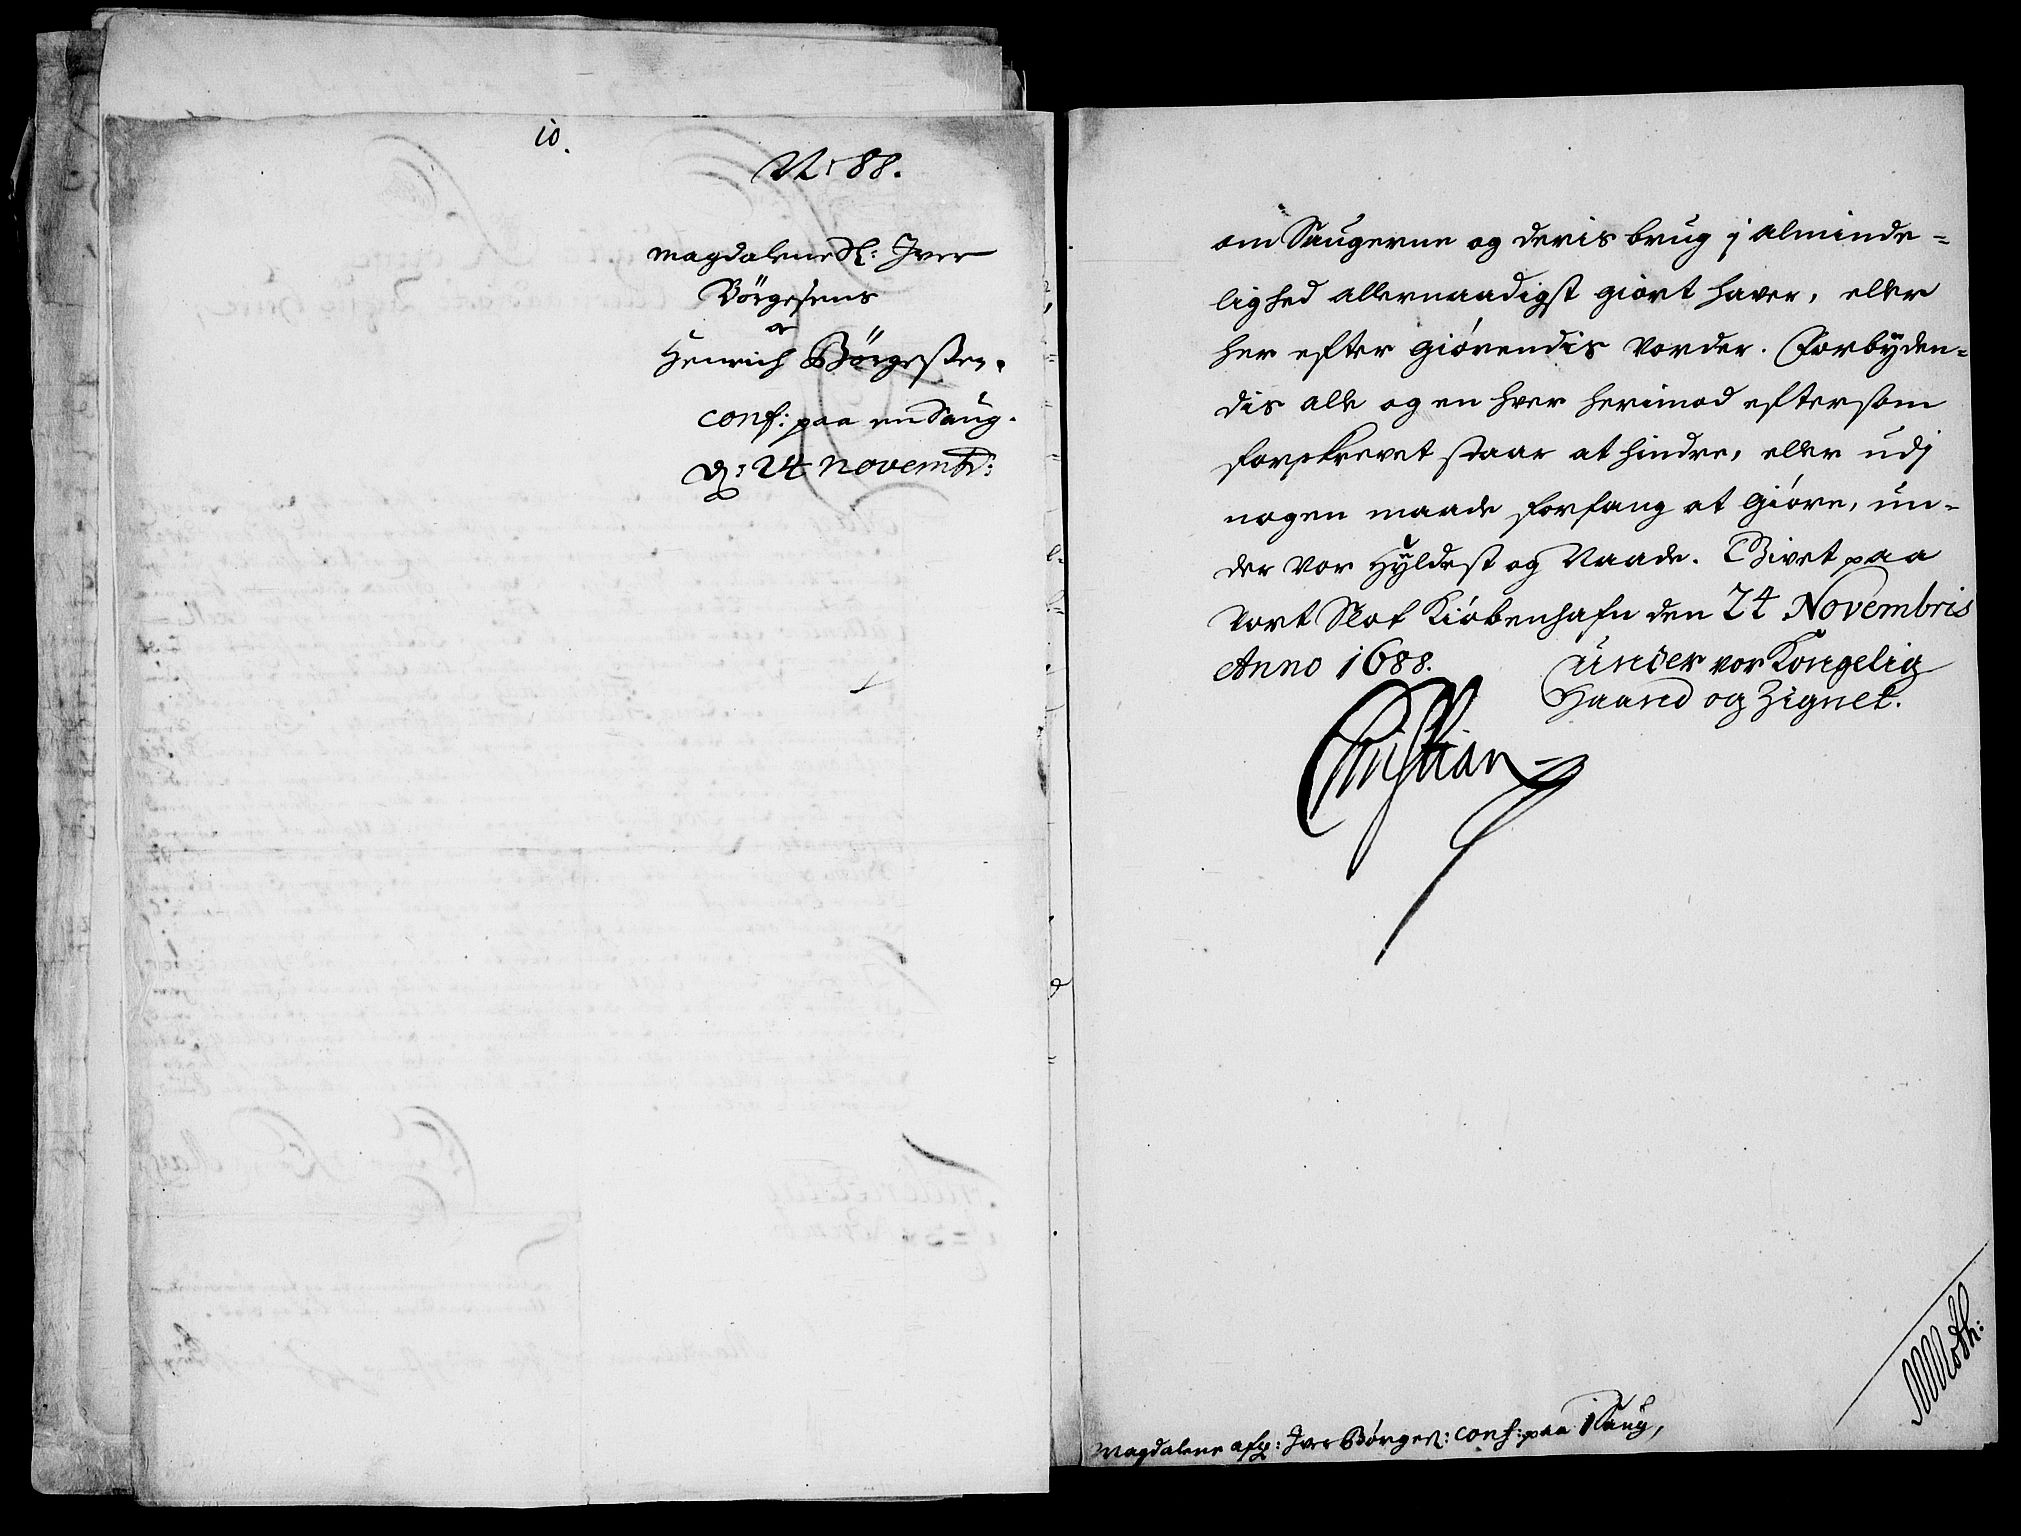 10.
N: 88.
Magdalene Sl: Iver
Börgesens
a
Henrich Börgesen.
conf: paa en Saug.
d: 24 novembr:
om Saugerne og deris brug j alminde=
lighed allernaadigst giort hafver, eller
her efter giörendis vorder. Forbyden=
dis alle og en hver herimod eftersom
forskrevet staar at hindre, eller udj
nogen maade forfang at giöre, un=
der vor Hyldest og Naade. Givet paa
Vort Slot Kiöbenhafn den 24 Novembris
Anno 1688.
Under vor Kongelig
Haand og Zignet.
Christian
MMoth:
Magdalene afg: Iver Börges: conf: paa 1 Saug,